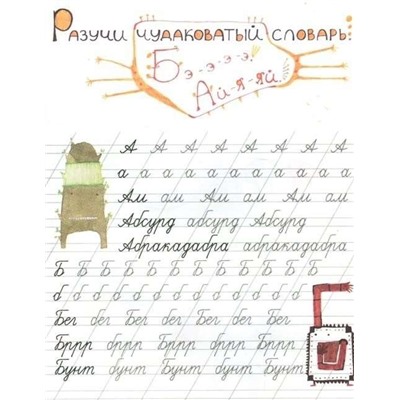 Разучи чудаковатый словарь:
Бэ-э-э-э!
Ай-я-яй.
А А А А А А А А
а а а а а а а а
Ам ам Ам ам Ам
Абсурд абсурд Абсурд
Абракадабра абракадабра
Б Б Б Б Б Б Б Б Б Б Б
б б б б б б б б б б б
Бег бег Бег бег Бег
Бррр бррр Бррр бррр Бррр
Бунт бунт Бунт бунт Бунт